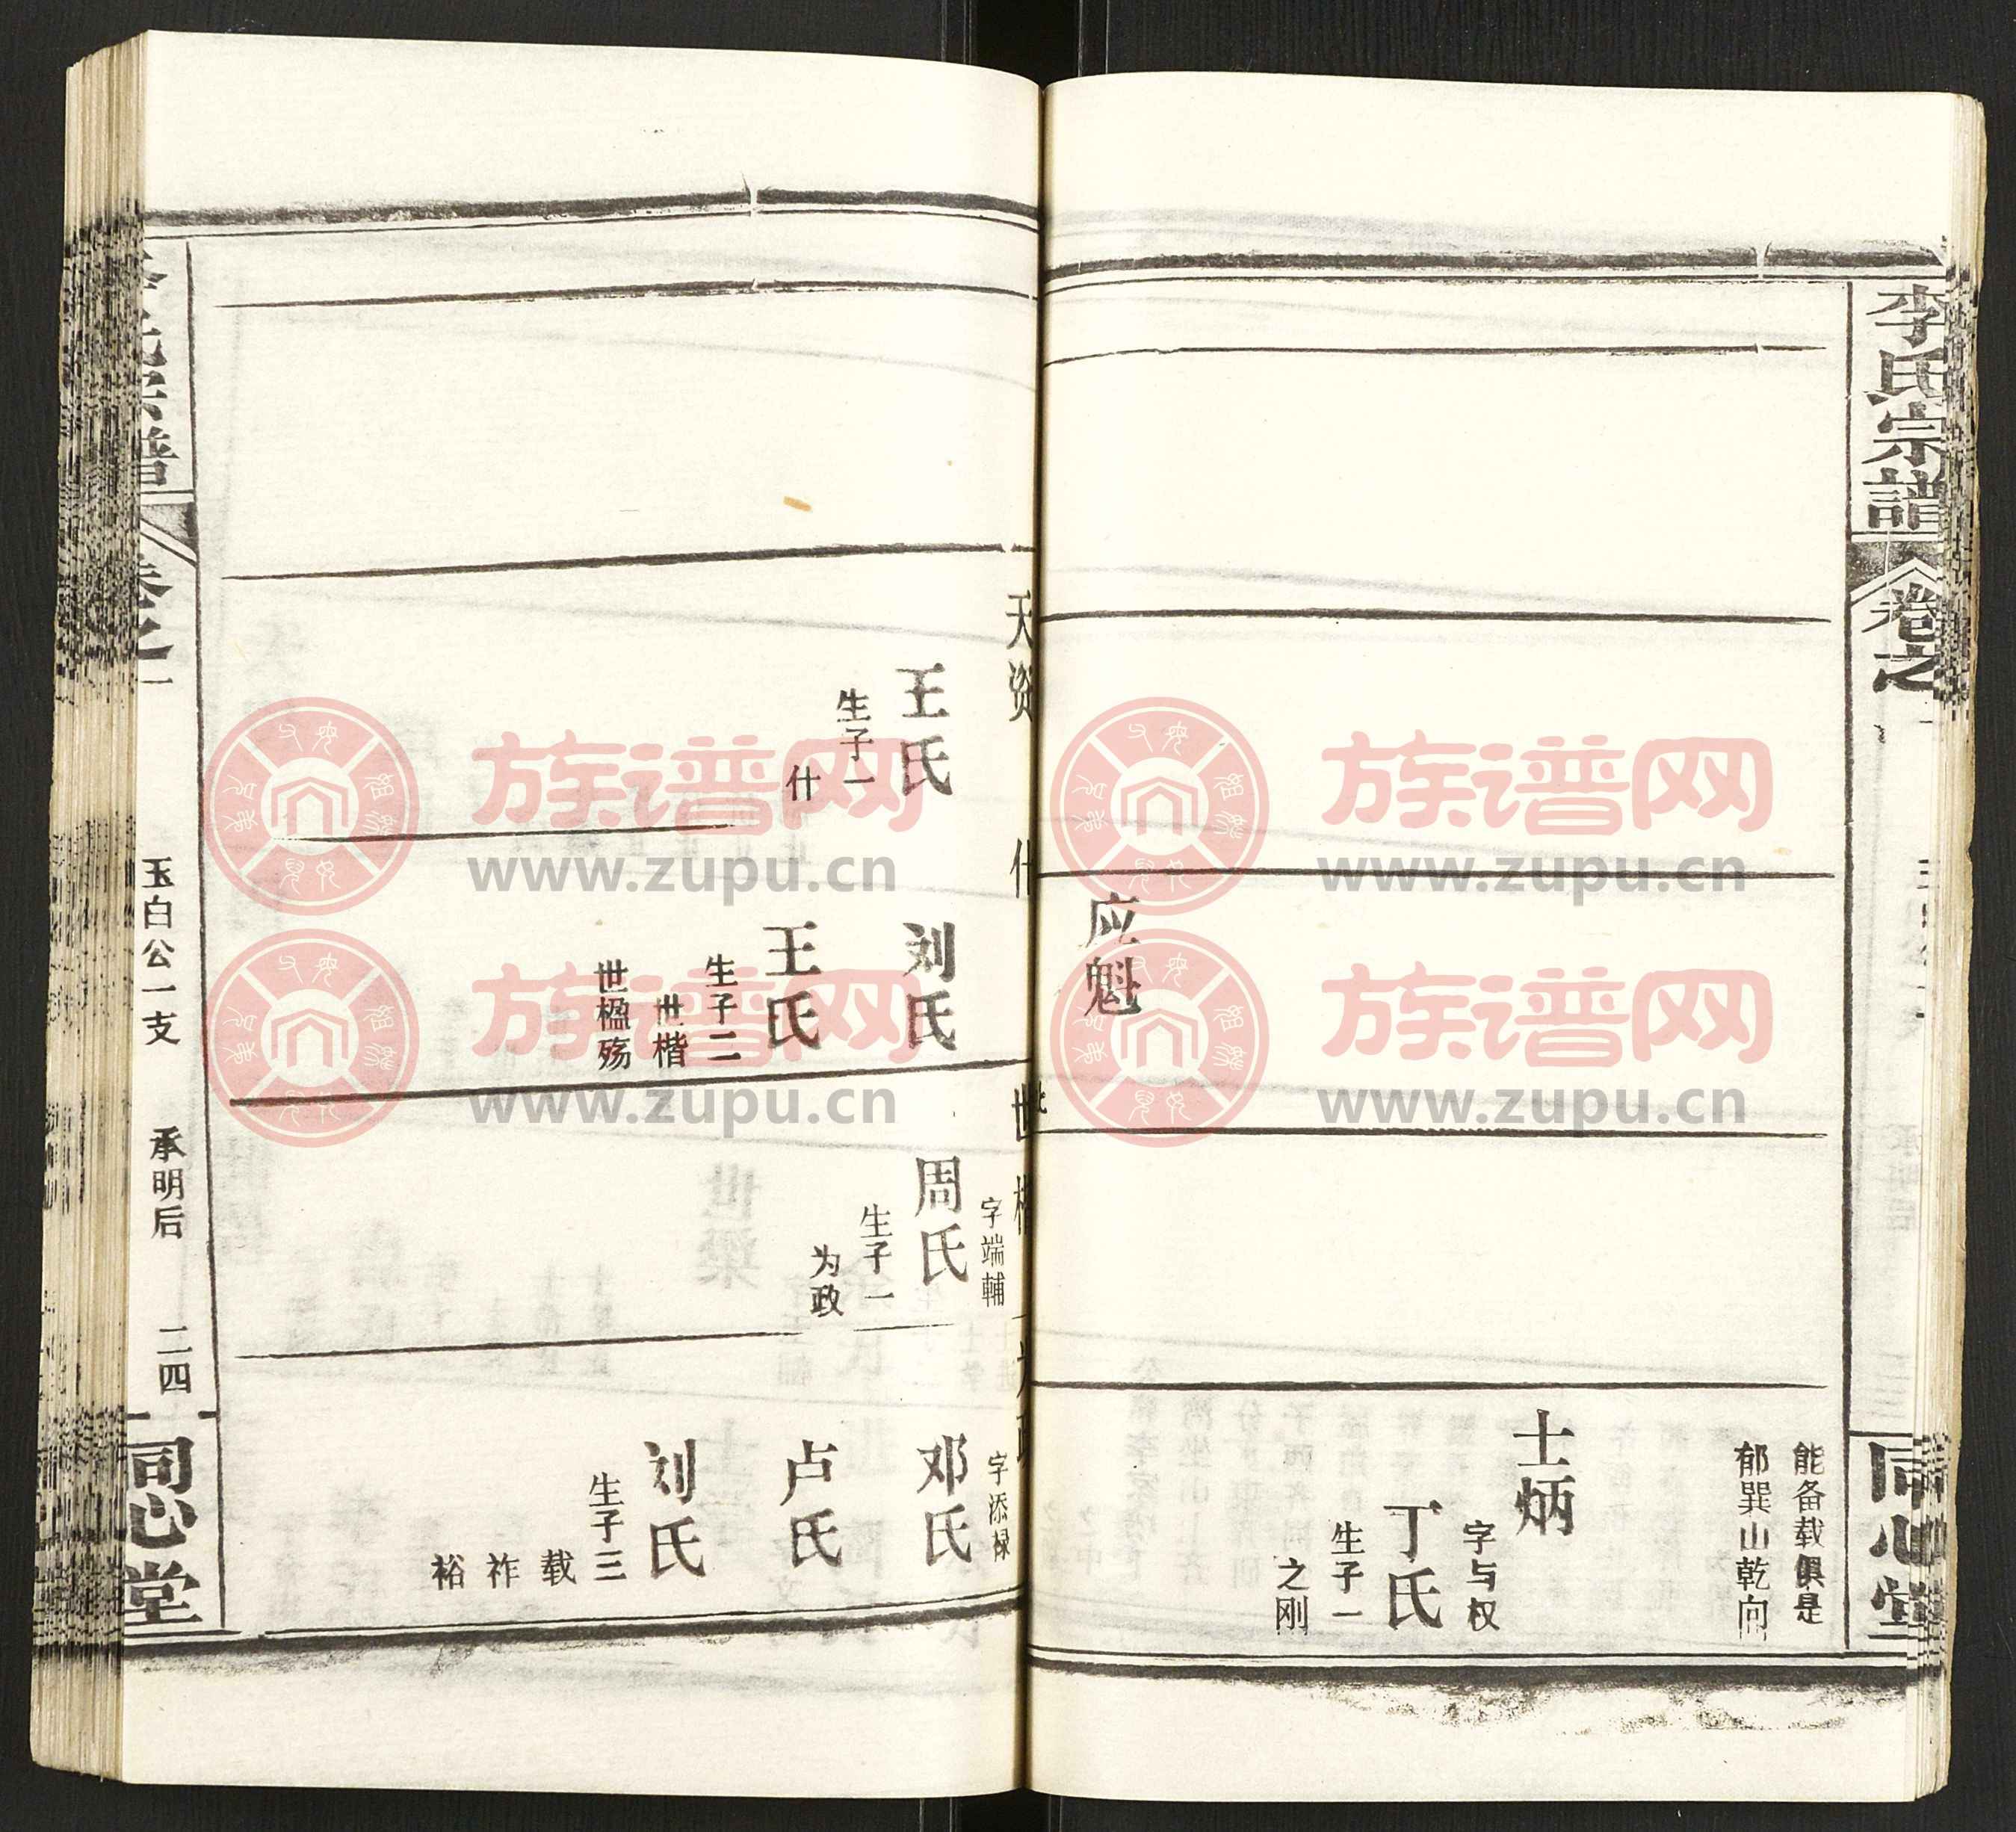 李氏宗譜
卷之一
能备载俱是
郁巽山乾向
士炳
字与权
丁氏
生子一
之刚
应魁
同心堂
天资
王氏
生子一
什
什
刘氏
王氏
生子二
世楷
世楹殇
世楷
字端輔
周氏
生子一
为政
为政
字添禄
邓氏
卢氏
刘氏
生子三
载
祚
裕
氏宗譜
卷之一
玉白公一支
承明后
二四
同心堂
族谱网
www.zupu.cn
族谱网
www.zupu.cn
族谱网
www.zupu.cn
族谱网
www.zupu.cn